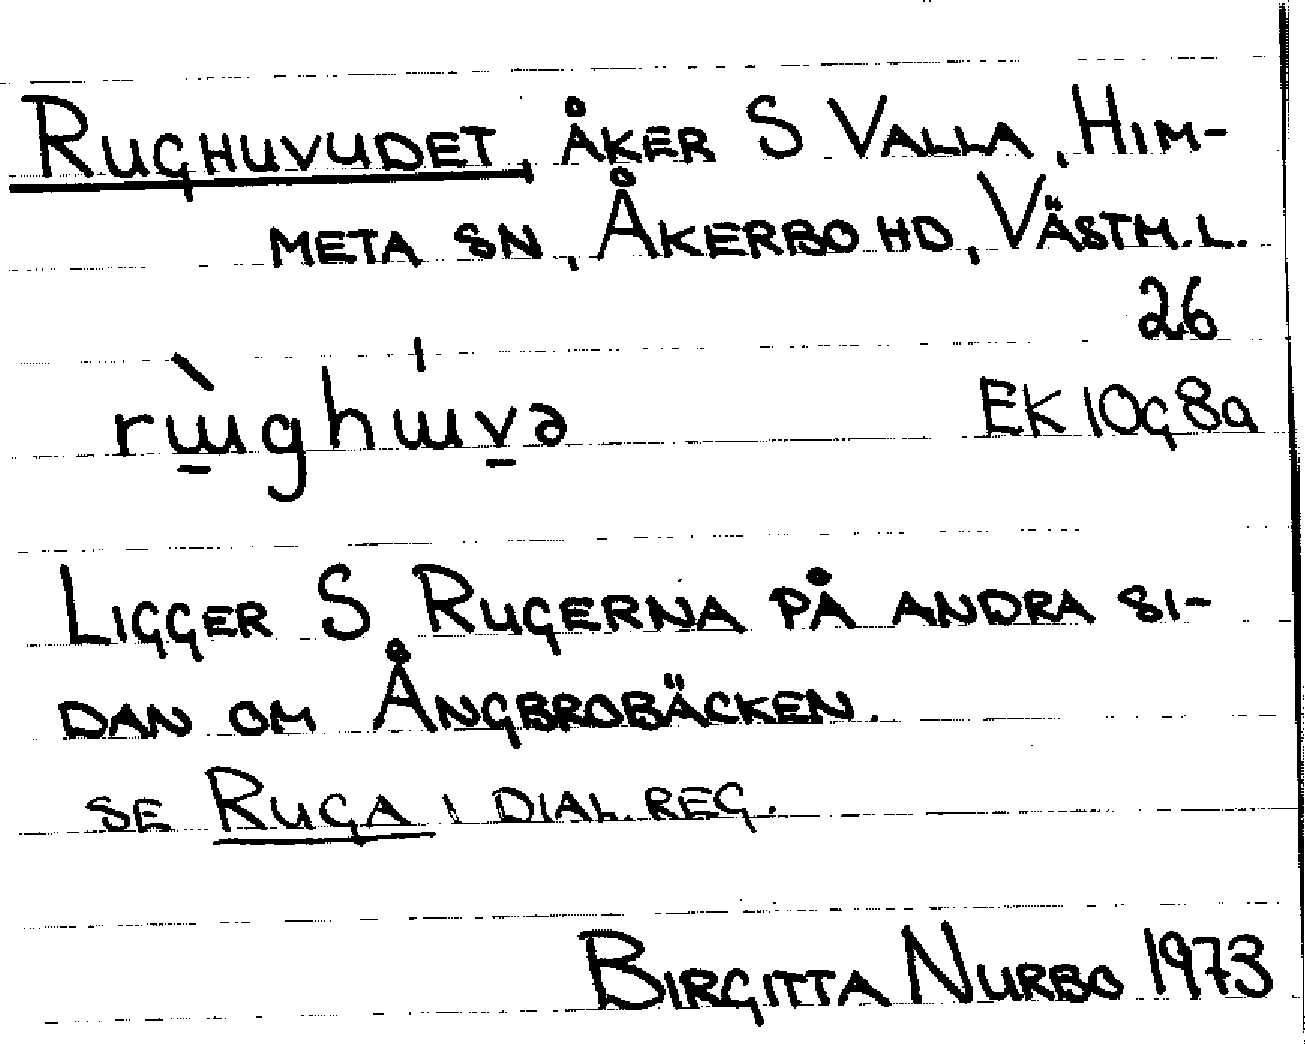 RUGHUVUDET, ÅKER S VALLA, HIM-
META SN, ÅKERBO HD, VÄSTM.L.
26
rɯ̲̀ghɯ́v̲ə
EK 10g8a
LIGGER S RUGERNA PÅ ANDRA SI-
DAN OM ÅNGBROBÄCKEN.
SE RUGA I DIAL.REG.
BIRGITTA NURBO 1973